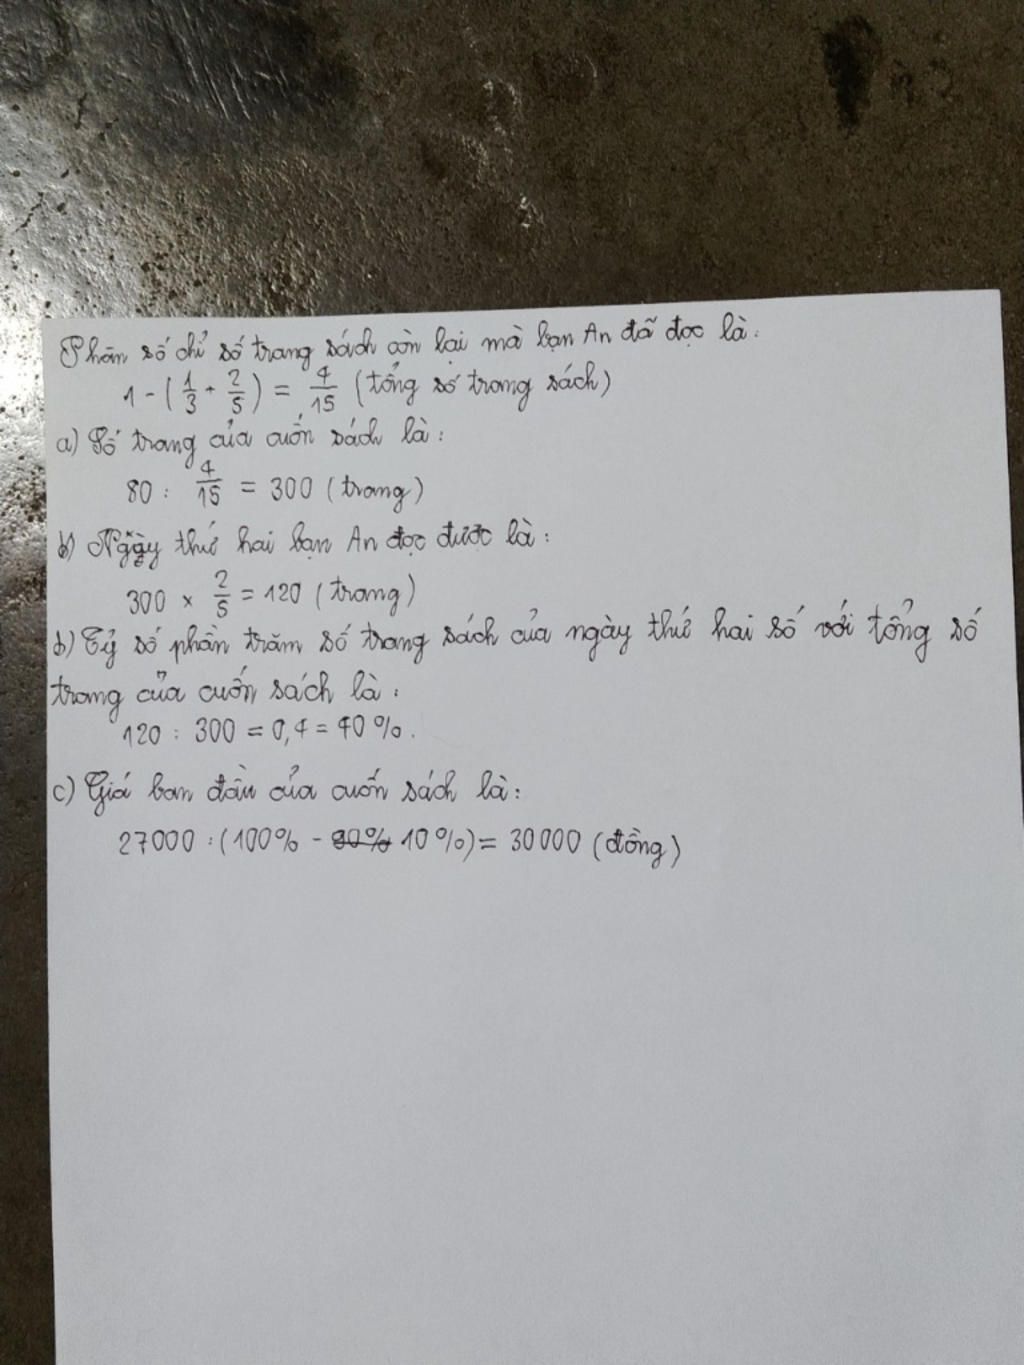 Phân số chỉ số trang sách còn lại mà bạn An đã đọc là:
1 - (1/3 + 2/5) = 4/15 (tổng số trang sách)
a) Số trang của cuốn sách là:
80 : 4/15 = 300 (trang)
b) Ngày thứ hai bạn An đọc được là:
300 × 2/5 = 120 (trang)
b) Tỷ số phần trăm số trang sách của ngày thứ hai số với tổng số
trang của cuốn sách là:
120 : 300 = 0,4 = 40%.
c) Giá ban đầu của cuốn sách là:
27000 : (100% - 90% 10%) = 30000 (đồng)